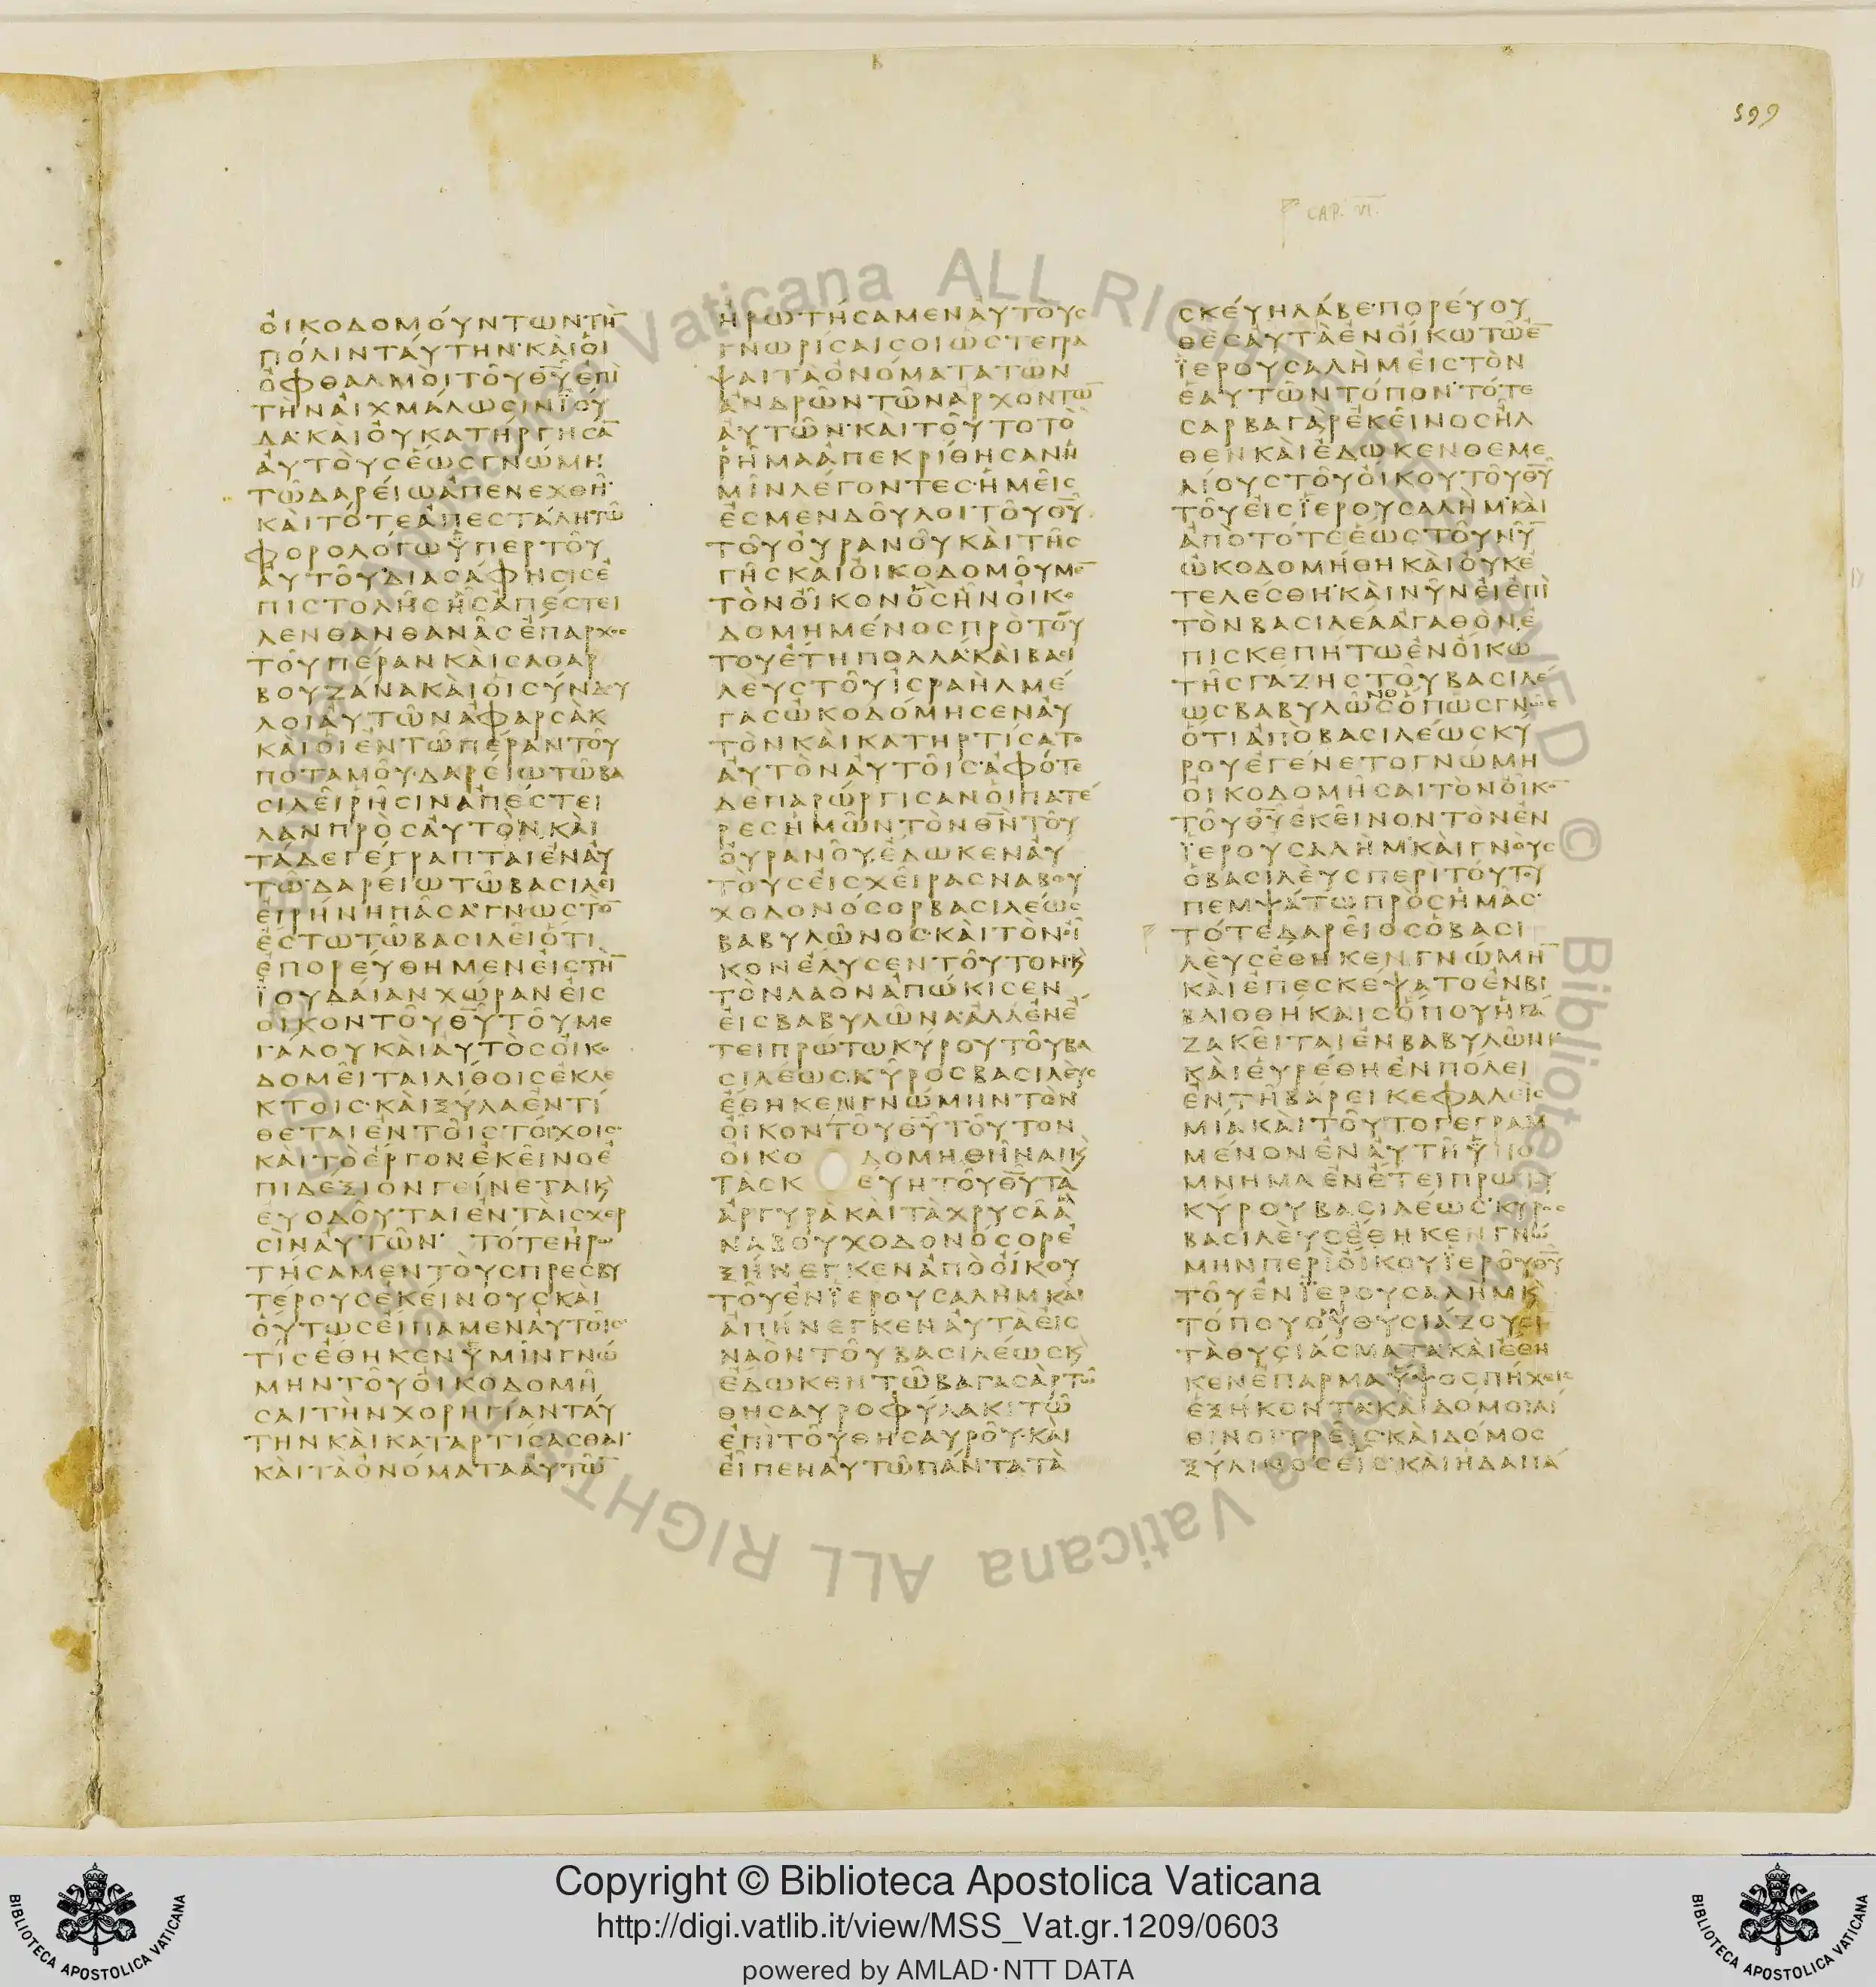 599
CAP. VI.
ὀικοδομόυντωντὴ̄
πόλινταύτην·κὰιὁι
ὀφθαλμὸιτοῦθῡἐπὶ
τὴνἀιχμάλωσινϊού
δα·κὰιὀυκατήργησᾱ
ἀυτὸυσἕωσγνώμη
τῶδαρείωἀπενεχθῆ·
κὰιτότεἀπεστάλητῶ
φορολόγωὑπερτοῦ
ἀυτοῦ·διασάφησισἐ
πιστολῆσἧσἀπέστει
λενθανθανᾶσἔπαρχοσ
τοῦπέρανκὰισαθαρ
βουζάνακὰιὁισύνδου
λοιἀυτῶναφαρσὰκ
κὰιὁιἐντῶπέραντοῦ
ποταμοῦ·δαρείωτῶβα
σιλεῖῥῆσιναπέστει
λανπρὸσἀυτὸν·κὰι
τάδεγέγραπταιἐναὐ
τῶ·δαρείωτῶβασιλεῖ
ἐιρήνηπᾶσα·γνωστὸ̄
ἔστωτῶβασιλεῖὅτι
ἐπορεύθημενἐιστὴ̄
ϊουδάιανχώρανἐισ
οἶκοντοῦθῡτοῦμε
γάλουκὰιἀυτὸσὀικο
δομεῖταιλίθοισἐκλε
κτοῖσ·κὰιξύλαἐντί
θεταιἐντοῖστόιχοισ·
κὰιτὸἔργονἐκεῖνοἐ
πιδέξιονγείνεταικ̀
ἐυοδοῦταιἐντὰισχερ
σὶναὐτῶν· τότεἠρω
τήσαμεντὸυσπρεσβυ
τέρουσἐκείνουσκὰι
ὅυτωσἐίπαμεναὐτοῖσ
τίσἔθηκενὑμῖνγνώ
μηντοῦὀικοδομῆ
σαιτὴνχορηγίανταύ
τηνκὰικαταρτίσασθαι·
κὰιτὰὀνόματααὐτῶ̄
ἠρωτήσαμεναὐτὸυσ
γνωρίσαισοιὥστεγρα
ψαιτὰὀνόματατῶν
ἀνδρῶντῶναρχόντω̄
ἀυτῶν·κὰιτοῦτοτὸ
ῥῆμαἀπεκρίθησανἡ
μῖνλέγοντεσ·ἡμεῖσ
ἐσμενδοῦλοιτοῦθῡ
τοῦὀυρανοῦκὰιτῆσ
γῆσκὰιὀικοδομοῦμε̄
τὸνοἶκονὃσἦνὀικο
δομημένοσπρὸτού
τουἔτηπολλά·κὰιβασι
λὲυστοῦισραὴλμέ
γασὠκοδόμησεναὐ
τὸνκὰικατηρτίσατο
ἀυτὸναὐτοῖσ·ἀφότε
δὲπαρώργισανὁιπατέ
ρεσἡμῶντὸνθν̄τοῦ
ὀυρανοῦ,ἔδωκεναὐ
τὸυσἐισχεῖρασναβου
χοδονόσορβασιλέωσ
βαβυλῶνοσ·κὰιτὸνοἶ
κονἔλυσεντοῦτον·κ̀
τὸνλαὸναπώκισεν
ἐισβαβυλῶνα·ἀλλἐνἔ
τειπρώτωκύρουτοῦβα
σιλέωσκῦροσβασιλὲυσ
ἔθηκενγνώμηντὸν
οἶκοντοῦθῡτοῦτον
ὀικοδομηθῆναικ̀
τὰσκεύητοῦθῡτὰ
ἀργυρᾶκὰιτὰχρυσᾶἃ
ναβουχοδονόσορἐ
ξήνεγκεναπὸὀίκου
τοῦἐνϊερουσαλὴμκὰι
ἀπήνεγκεναυτὰἐισ
ναὸντοῦβασιλέωσκ̀
ἔδωκεντῶβαγασὰρτῶ
θησαυροφύλακιτῶ
ἐπὶτοῦθησαυροῦ·κὰι
ἐῖπεναὐτῶπάντατὰ
σκέυηλάβε·πορέυου
θὲσἀυτὰἐνὀίκωτῶἐ̄
ϊερουσαλὴμἐιστὸν
ἑαυτῶντόπον·τότε
σαρβαγὰρἐκεῖνοσἦλ
θενκὰιἔδωκενθεμε
λίουστοῦὀίκουτοῦθῡ
τοῦἐισϊερουσαλὴμ·κὰι
ἀπὸτότεἕωστοῦνῦ̄
ὠκοδομήθηκὰιὀυκἐ
τελέσθη·κὰινῦνἐιἐπὶ
τὸνβασιλέαἀγαθὸν,ἐ
πισκεπήτωἐνὀίκω
τῆσγάζηστοῦβασιλέ
ωσβαβυλῶνοσὅπωσγνῶσ
ὅτιἀπὸβασιλέωσκύ
ρουἐγένετογνώμη
ὀικοδομῆσαιτὸνοἶκο̄
τοῦθῡἐκεῖνοντὸνἐν
ϊερουσαλὴμ·κὰιγνὸυσ
ὁβασιλὲυσπερὶτούτου
πεμψάτωπρὸσἡμᾶσ·
τότεδαρεῖοσὁβασι
λὲυσἔθηκενγνώμη̄
κὰιἐπεσκέψατοἐνβι
βλιοθήκαισὅπουἡγά
ζακεῖταιἐνβαβυλῶνι
κὰιἑυρέθηἐνπόλει
ἐντῆβάρεικεφαλεὶσ
μία·κὰιτοῦτογεγραμ
μένονἐναὐτῆὑπο
μνημαἐνἔτειπρώτω
κύρουβασιλέωσ·κύροσ
βασιλὲυσἔθηκενγνώ
μηνπερὶὀίκουϊεροῦθῡ
τοῦἐνϊερουσαλὴμκ̀
τόπουοὗθυσιάζουσι
τὰθυσιάσματα·κὰιἔθη
κενἔπαρμαὕψοσπήχεισ
ἑξήκοντα·κὰιδόμοιλί
θινοιτρεῖσ·κὰιδόμοσ
ξύλινοσἐῖσ·κὰιἡδαπά
Copyright © Biblioteca Apostolica Vaticana
http://digi.vatlib.it/view/MSS_Vat.gr.1209/0603
powered by AMLAD·NTT DATA
BIBLIOTECA APOSTOLICA VATICANA
BIBLIOTECA APOSTOLICA VATICANA